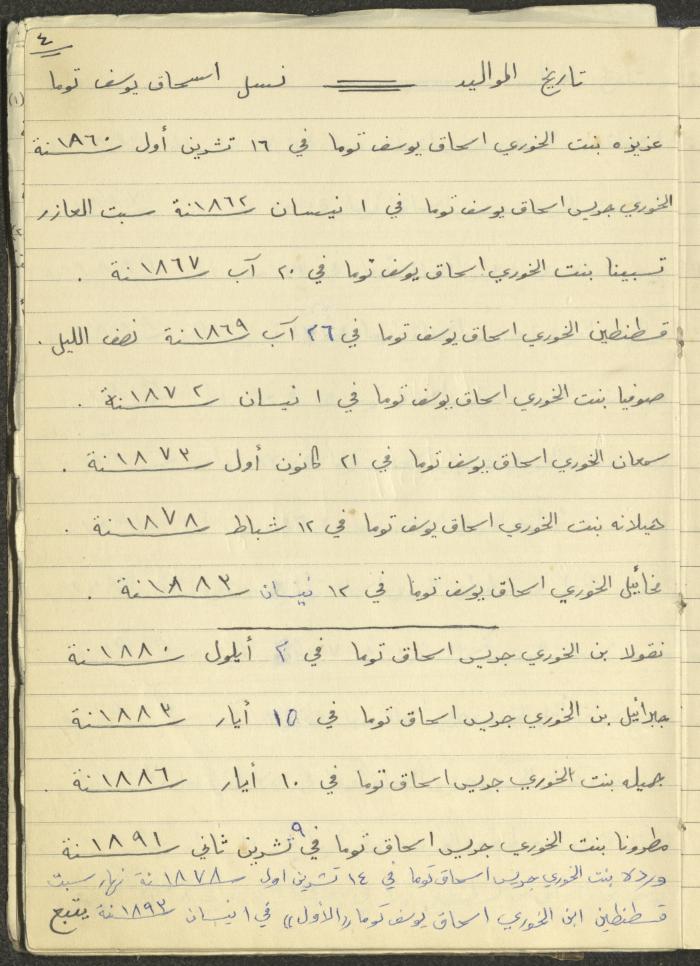 ٤
تاريخ المواليد ــــ نسل اسحاق يوسف توما
عزيزه بنت الخوري اسحاق يوسف توما في ١٦ تشرين أول سنة ١٨٦٠
الخوري جريس اسحاق يوسف توما في ١ نيسان سنة ١٨٦٢ سبت العازر
تسبينا بنت الخوري اسحاق يوسف توما في ٢٠ آب سنة ١٨٦٧ .
قسطنطين الخوري اسحاق يوسف توما في ٢٦ آب سنة ١٨٦٩ نصف الليل .
صوفيا بنت الخوري اسحاق يوسف توما في ١ نيسان سنة ١٨٧٢ .
سمعان الخوري اسحاق يوسف توما في ٢١ كانون أول سنة ١٨٧٣ .
هيلانه بنت الخوري اسحاق يوسف توما في ١٢ شباط سنة ١٨٧٨ .
مخائيل الخوري اسحاق يوسف توما في ١٢ نيسان سنة ١٨٨٣ .
نقولا بن الخوري جريس اسحاق توما في ٢ أيلول سنة ١٨٨٠
جبرائيل بن الخوري جريس اسحاق توما في ١٥ أيار سنة ١٨٨٣
جميله بنت الخوري جريس اسحاق توما في ١٠ أيار سنة ١٨٨٦ .
مطرونا بنت الخوري جريس اسحاق توما في ٩ تشرين ثاني سنة ١٨٩١
ورده بنت الخوري جريس اسحاق توما في ١٤ تشرين اول سنة ١٨٧٨ نهار سبت
قسطنطين ابن الخوري اسحاق يوسف توما ((الأول)) في ١ نيسان سنة ١٨٩٣ يتبع